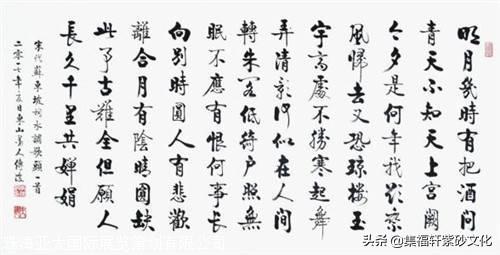 明月幾時有把酒問
青天不知天上宮闕
今夕是何年我欲乘
風歸去又恐瓊樓玉
宇高處不勝寒起舞
弄清影何似在人間
轉朱閣低綺户照無
眠不應有恨何事長
向別時圓人有悲歡
離合月有陰晴圓缺
此事古難全但願人
長久千里共嬋娟
宋代蘇東坡詞水調歌頭一首
二零一七年夏日東山人
国际展览策划有限公司
头条 @集福轩紫砂文化